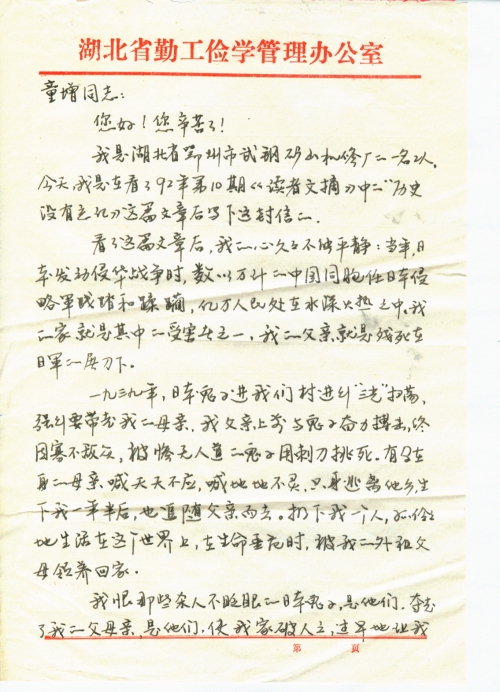 湖北省勤工俭学管理办公室
童增同志:
您好!您辛苦了!
我是湖北省鄂州市武钢矿山机修厂的一名工人。
今天,我是在看了92年第10期《读者文摘》中的"历史
没有忘记》这篇文章后写下这封信的。
看了这篇文章后,我的心久久不能平静:当年,日
本发动侵华战争时,数以万计的中国同胞任日本侵
略军残踏和蹂躏,亿万人民处在水深火热之中。我
的家就是其中的受害者之一,我的父亲就是残死在
日军的屠刀下。
一九三九年,日本鬼子进我们村进行"三光"扫荡,
强行要带走我的母亲,我父亲上前与鬼子奋力搏击,终
因寡不敌众,被惨无人道的鬼子用刺刀挑死。有孕在
身的母亲喊天天不应,喊地地不灵,只身逃离他乡,生
下我一年半后,也追随父亲而去。扔下我一个人,孤伶伶
地生活在这个世界上,在生命垂危时,被我的外祖父
母领养回家。
我恨那些杀人不眨眼的日本鬼子,是他们,夺走
了我的父母亲,是他们,使我家破人亡,过早地让我
第 頁